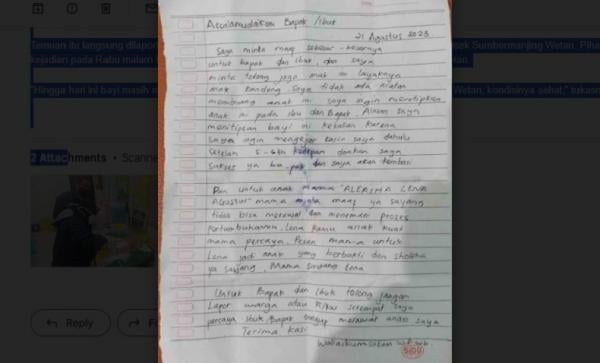 Temuan itu langsung dilapor
sek Sumbermanjing Wetan. Piha
kejadian pada Rabu malam
"Hingga hari ini bayi masih
Wetan, kondisinya sehat," tukas
2 Attachments • Scanne
Reply
For
Assalamualaikum Bapak / ibut
21 Agustus 2023
Saya minta maaf sebesar-besarnya
untuk bapak dan ibuk, dan saya
minta tolong jaga anak ini layaknya
anak kandung. Saya tidak ada niatan
membuang anak ini saya ingin menitipkan
anak ini pada ibu dan Bapak. Alasan saya
menitipkan bayi ini kekalian karena
saya ingin mengejar karir saya dahulu
Setelah 5-6th kedepan doakan saya
Sukses ya bu, pak dan saya akan kembali
Dan untuk anak mama "ALEASHA LENA
AGUSTUS" mama minta maaf ya sayang
tidak bisa merawat dan menemani proses
Pertumbuhanmu, Lena kamu anak kuat
mama percaya. Pesan mama untuk
Lena jadi anak yang berbakti dan sholeha
ya sayang, Mama sayang Lena
Untuk Bapak dan ibuk tolong jangan
Lapor warga atau RT/RW setempat saya
percaya ibuk, Bapak sanggup merawat anak saya
Terima kasi
Wallaikumsalam wr. wb.